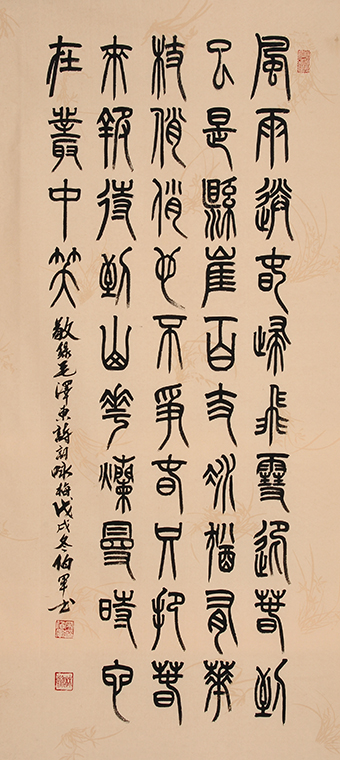 風雨送春歸飛雪迎春到
已是縣崖百丈冰猶有花
枝俏俏也不爭春只把春
來報待到山花爛曼時她
在叢中笑
敬錄毛澤東詩詞咏梅戊戌冬伯軍書